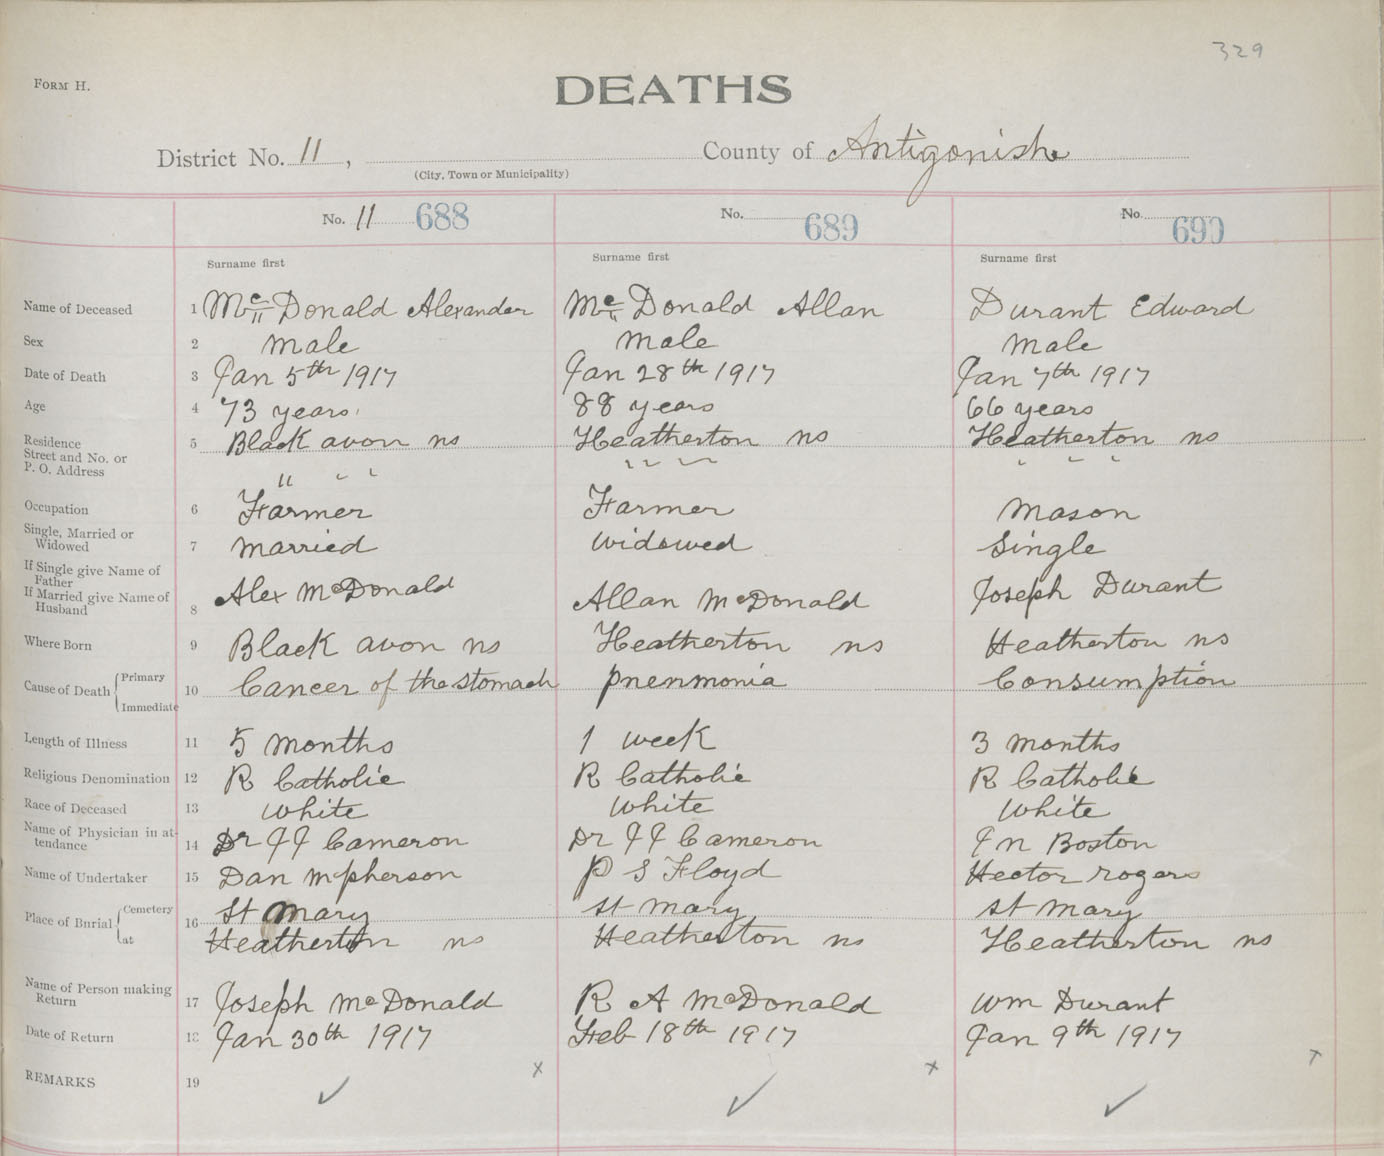 329
FORM H.
DEATHS
District No. 11, County of Antigonish
(City, Town or Municipality)
No. 11 688 No. 689 No. 690
Surname first Surname first Surname first
Name of Deceased 1 McDonald Alexander McDonald Allan Durant Edward
Sex 2 male male male
Date of Death 3 Jan 5th 1917 Jan 28th 1917 Jan 7th 1917
Age 4 73 years 88 years 66 years
Residence 5 Black avon ns Heatherton ns Heatherton ns
Street and No. or
P. O. Address " " " " " " " " "
Occupation 6 Farmer Farmer mason
Single, Married or
Widowed 7 married widowed single
If Single give Name of
Father
If Married give Name of
Husband 8 Alex McDonald Allan McDonald Joseph Durant
Where Born 9 Black avon ns Heatherton ns Heatherton ns
Cause of Death Primary 10 Cancer of the stomach pnenmonia Consumption
Immediate
Length of Illness 11 5 months 1 week 3 months
Religious Denomination 12 R Catholic R Catholic R Catholic
Race of Deceased 13 white white white
Name of Physician in at-
tendance 14 Dr J J Cameron Dr J J Cameron In Boston
Name of Undertaker 15 Dan mcpherson P S Floyd Hector rogers
Place of Burial Cemetery 16 St Mary st mary st mary
at Heatherton ns Heatherton ns Heatherton ns
Name of Person making
Return 17 Joseph McDonald R A McDonald wm Durant
Date of Return 18 Jan 30th 1917 Feb 18th 1917 Jan 9th 1917
REMARKS 19 ✓ x ✓ x ✓ x